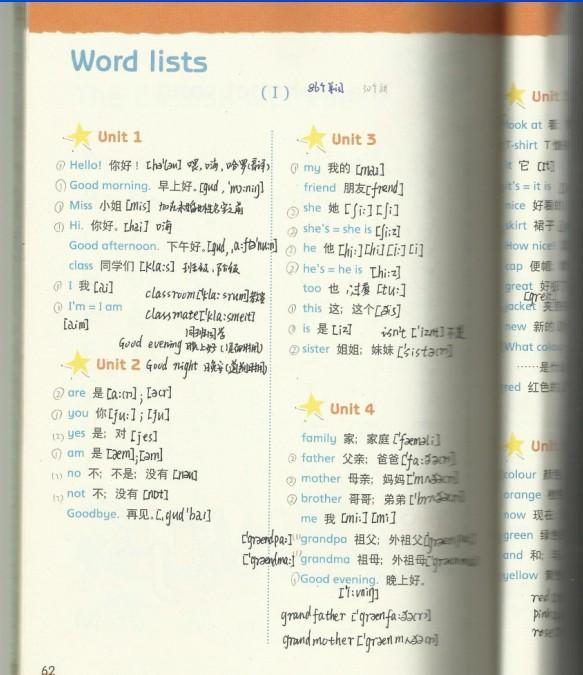 Word lists
(I) 86个单词
Unit 1
Hello! 你好！ [hə'ləʊ] 喂, 嗨, 哈罗
Good morning. 早上好。 [gud, 'mɔ:niŋ]
Miss 小姐 [mis]
Hi. 你好。 [hai] 嗨
Good afternoon. 下午好。
class 同学们 [kla:s]
I 我 [ai]
classroom ['kla:srum] 教室
I'm = I am
classmate ['kla:smeit]
[aim]
同班同学
Good evening 晚上好
Unit 2
Good night 晚安
are 是 [a:(r)]; [ə(r)]
you 你 [ju:]; [ju]
yes 是；对 [jes]
am 是 [æm]; [əm]
no 不；不是；没有 [nəu]
not 不；没有 [nɒt]
Goodbye. 再见。 [ˌgud'bai]
62
Unit 3
my 我的 [mai]
friend 朋友 [frend]
she 她 [ʃi:] [ʃi]
she's = she is [ʃi:z]
he 他 [hi:] [hi] [i:] [i]
he's = he is [hi:z]
too 也, 过度 [tu:]
this 这；这个 [ðis]
is 是 [iz] isn't ['iznt] 不是
sister 姐姐；妹妹 ['sistə(r)]
Unit 4
family 家；家庭 ['fæməli]
father 父亲；爸爸 ['fa:ðə(r)]
mother 母亲；妈妈 ['mʌðə(r)]
brother 哥哥；弟弟 ['brʌðə(r)]
me 我 [mi:] [mi]
['grændpa:] grandpa 祖父；外祖父
['grændma:] grandma 祖母；外祖母
Good evening. 晚上好。
['i:vniŋ]
grandfather ['grænfa:ðə(r)]
grandmother ['grænmʌðə(r)]
Unit
look at 看
T-shirt T
it 它 [it]
it's = it is
nice 好看
skirt 裙子
How nice!
cap 便帽
great 好
[greit]
jacket 夹
new 新的
What colou
……是什
red 红色的
Unit
colour 颜
orange 橙
now 现在
green 绿
and 和；
yellow 黄
red
pink
rose